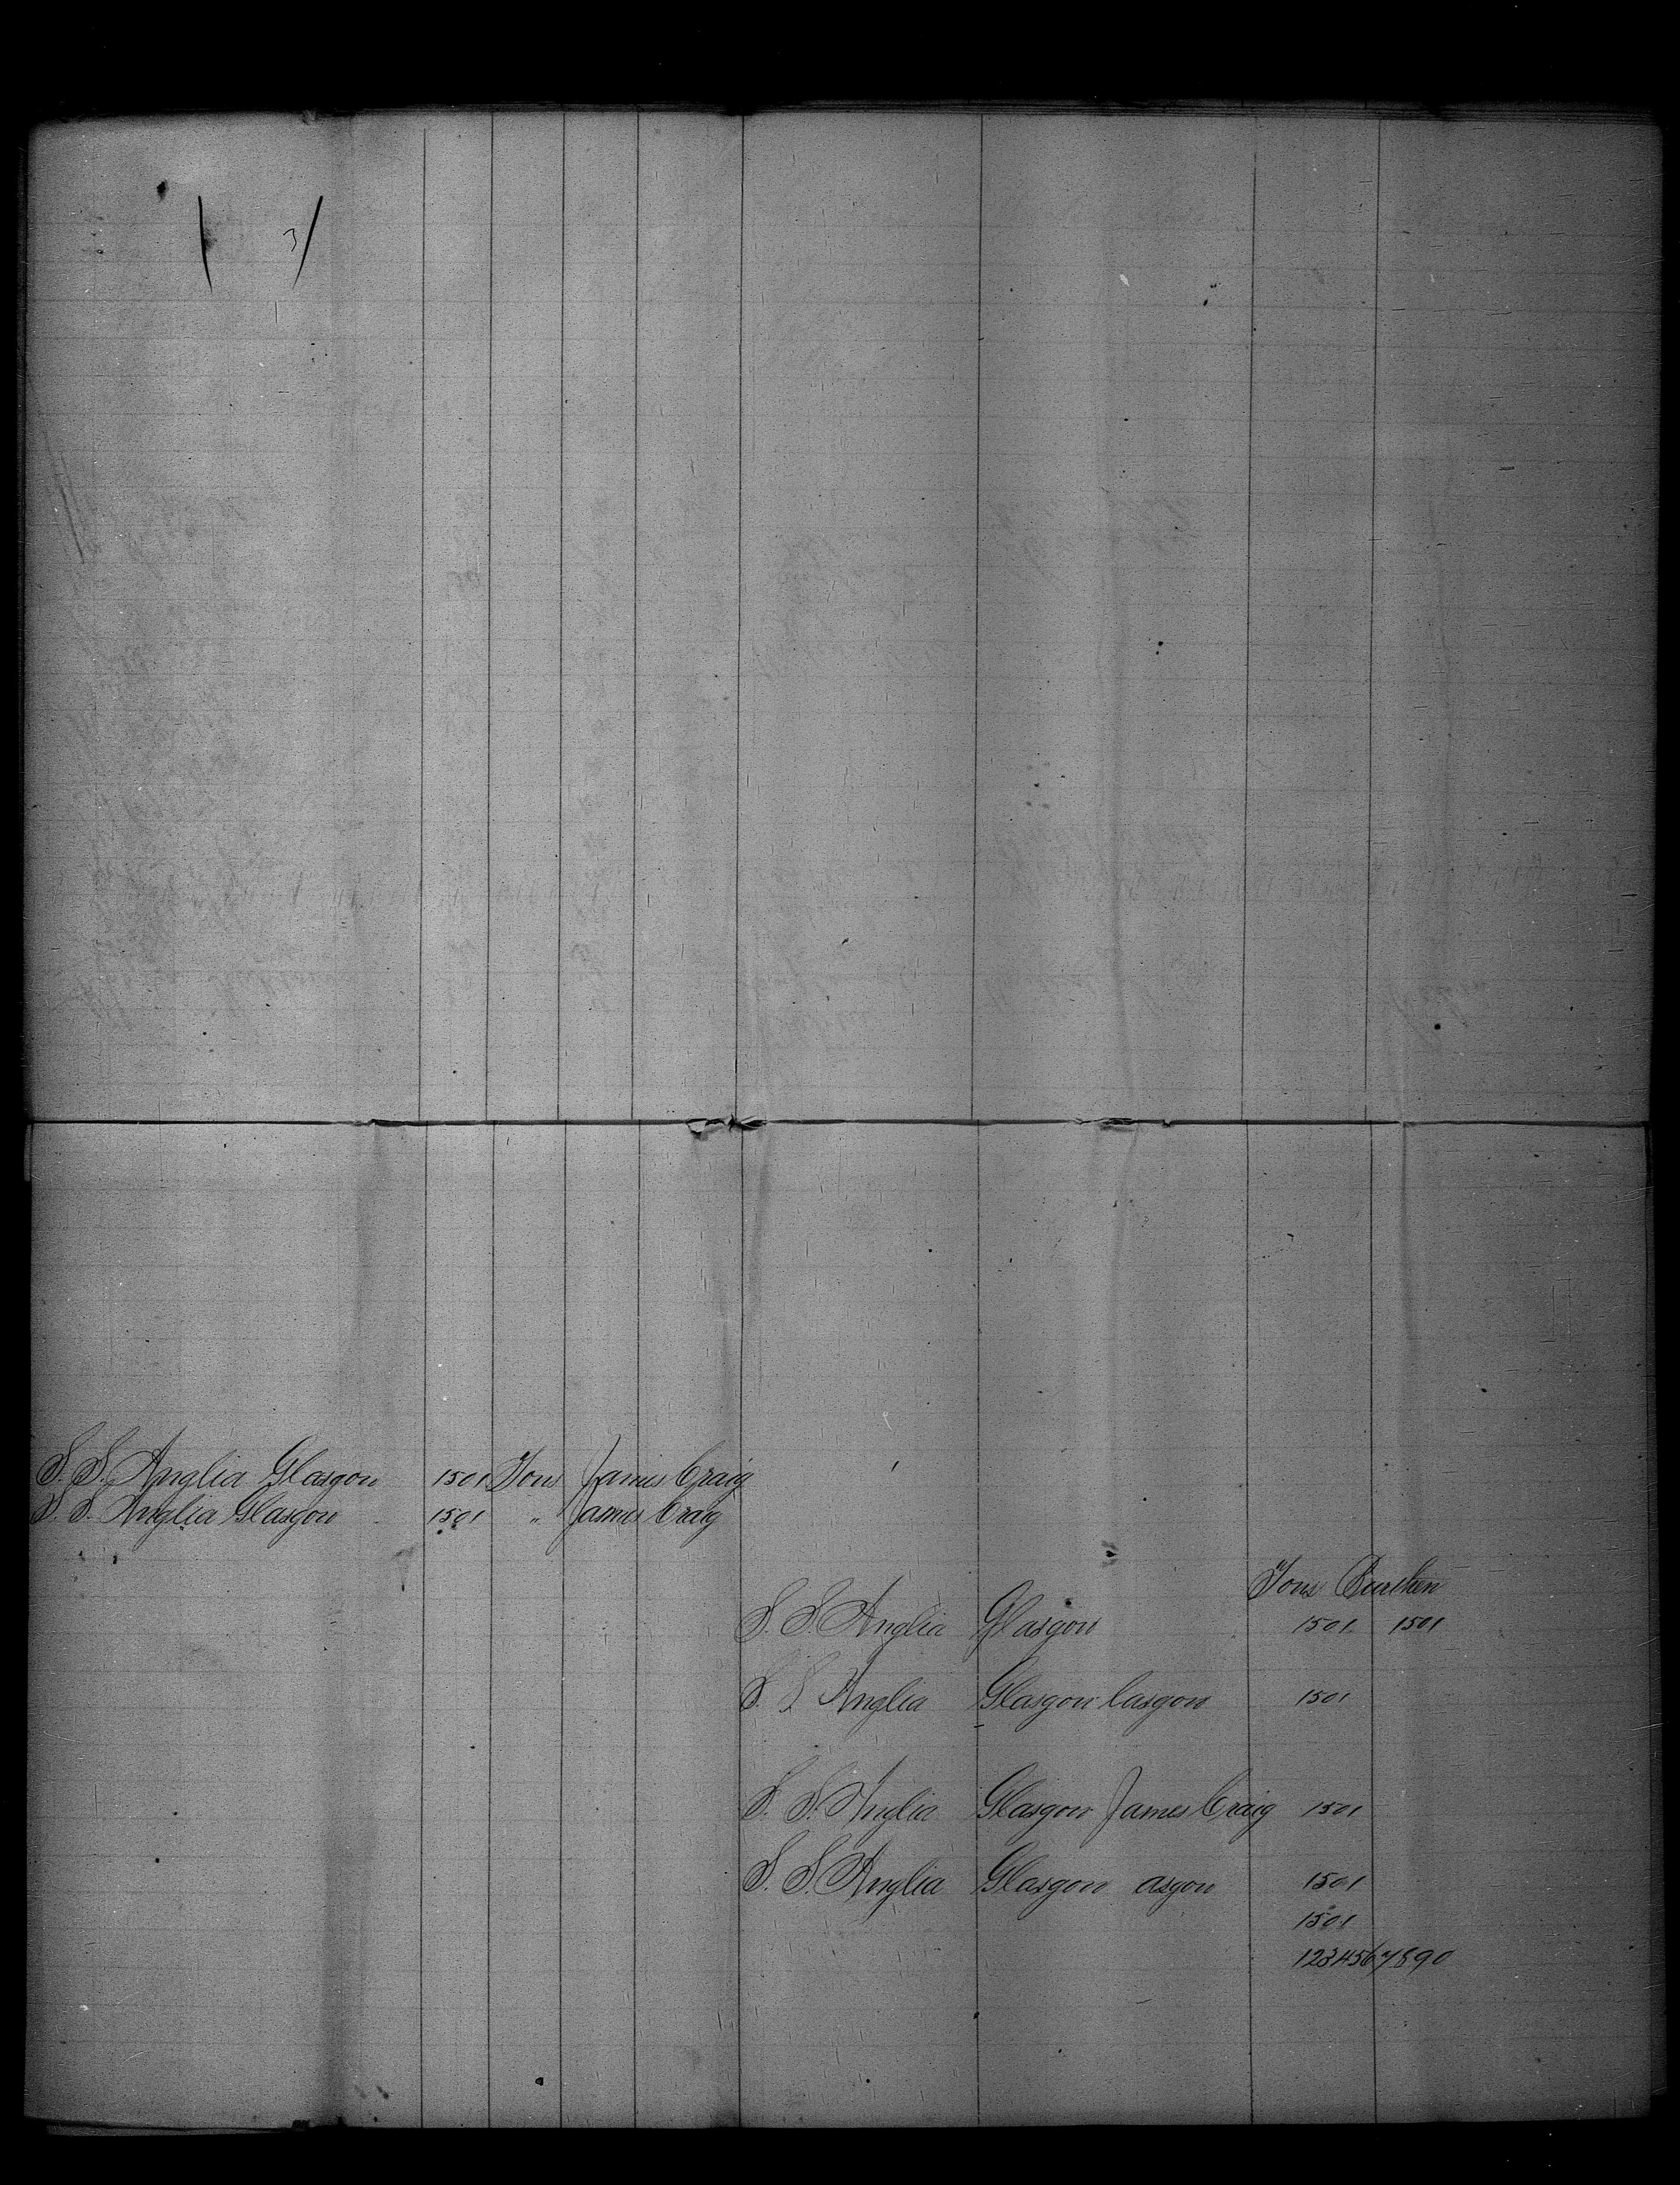 3
S. S. Anglia Glasgow 1501 Tons James Craig
S. S. Anglia Glasgow 1501 " James Craig
Tons Burthen
S. S. Anglia Glasgow 1501 1501
S. S. Anglia Glasgow lasgow 1501
S. S. Anglia Glasgow James Craig 1501
S. S. Anglia Glasgow asgow 1501
1501
1234567890